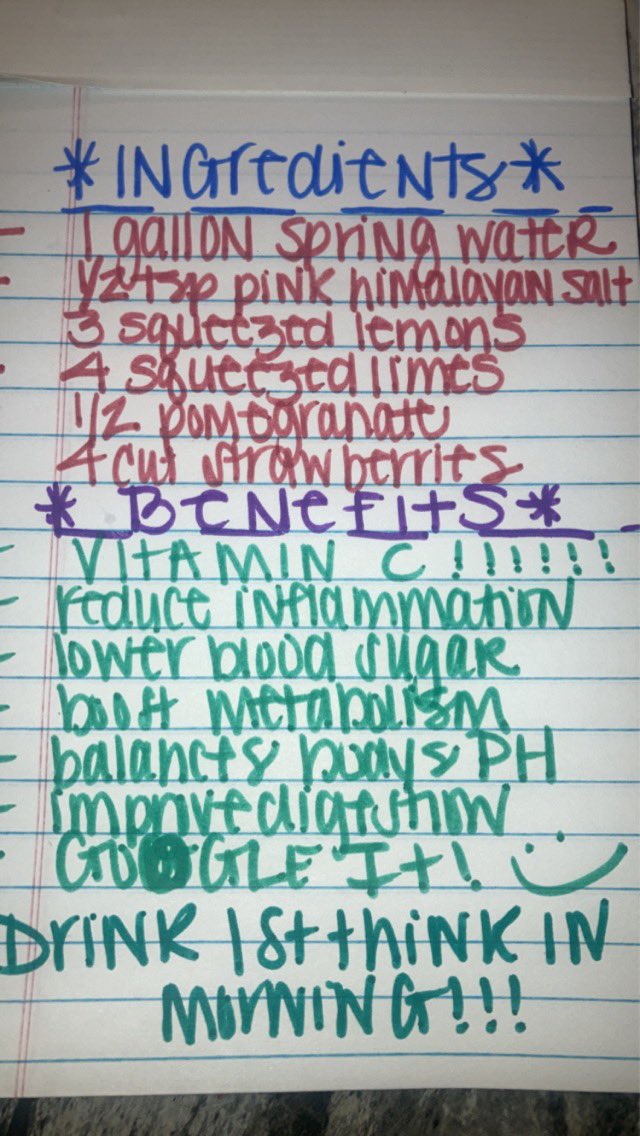 *INGredients*
- 1 gallon spring water
- 1/2 tsp pink himalayan salt
3 squeezed lemons
- 4 squeezed limes
1/2 pomegranate
4 cut strawberries
* BENEFITS *
- VITAMIN C !!!!!!
- reduce inflammation
- lower blood sugar
- boost metabolism
- balances bodys PH
- improve digestion
- GOOGLE It! :)
DRINK 1st think IN
MORNING!!!